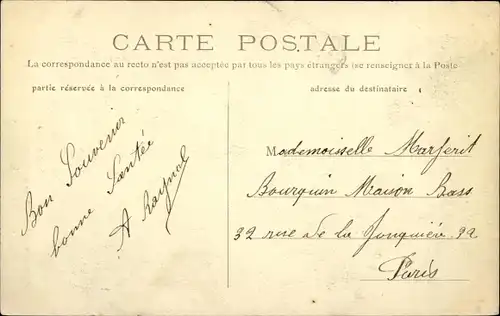 CARTE POSTALE
La correspondance au recto n'est pas acceptée par tous les pays étrangers (se renseigner à la Poste
partie réservée à la correspondance
adresse du destinataire
Bon Souvenir
bonne Santée
A Raynal
Mademoisselle Marferit
Bourquin Maison Bass
32 rue de la Jonquière 92
Paris